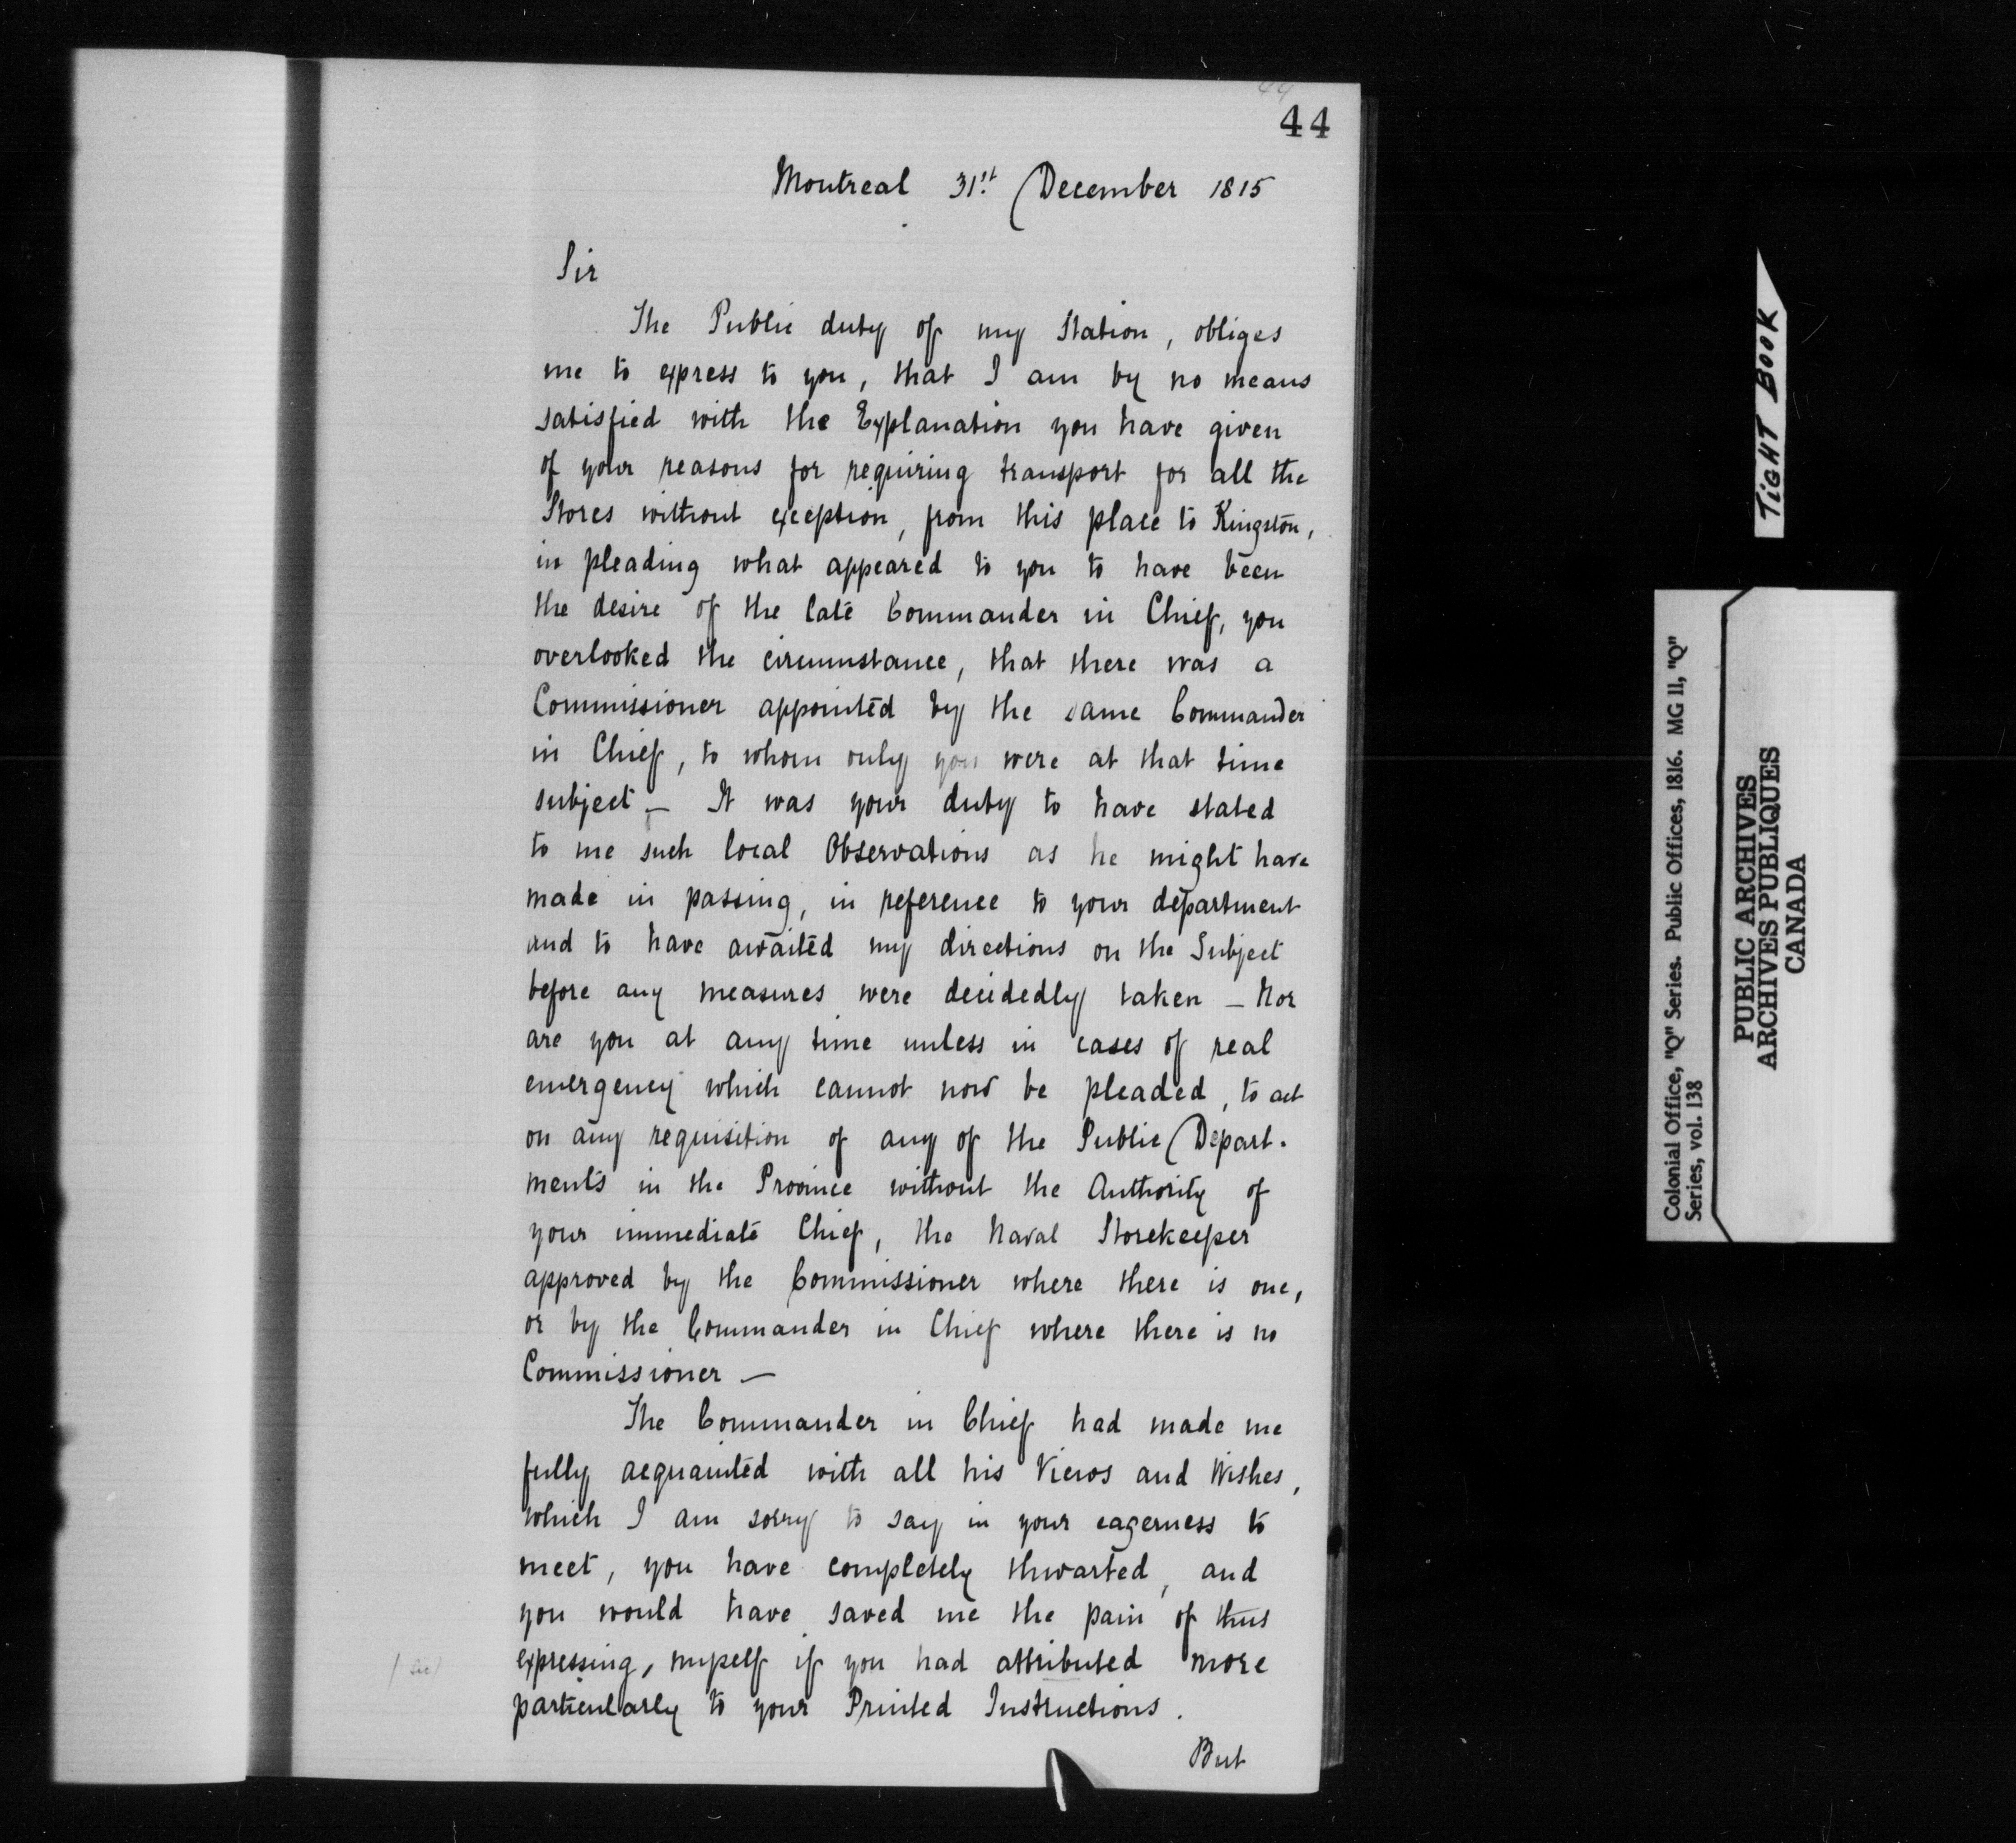 44
44
Montreal 31st December 1815
Sir
The Public duty of my Station, obliges
me to express to you, that I am by no means
satisfied with the Explanation you have given
of your reasons for requiring transport for all the
Stores without exception, from this place to Kingston,
in pleading what appeared to you to have been
the desire of the late Commander in Chief, you
overlooked the circumstance, that there was a
Commissioner appointed by the same Commander
in Chief, to whom only you were at that time
subject — It was your duty to have stated
to me such local Observations as he might have
made in passing, in reference to your department
and to have awaited my directions on the Subject
before any measures were decidedly taken — Nor
are you at any time unless in cases of real
emergency which cannot now be pleaded, to act
on any requisition of any of the Public Depart-
ments in the Province without the Authority of
your immediate Chief, the Naval Storekeeper
approved by the Commissioner where there is one,
or by the Commander in Chief where there is no
Commissioner —
The Commander in Chief had made me
fully acquainted with all his Views and Wishes,
which I am sorry to say in your eagerness to
meet, you have completely thwarted, and
you would have saved me the pain of thus
(sic) expressing, myself if you had attributed more
particularly to your Printed Instructions.
But
TIGHT BOOK
Colonial Office, "Q" Series. Public Offices, 1816. MG 11, "Q"
Series, vol. 138
PUBLIC ARCHIVES
ARCHIVES PUBLIQUES
CANADA